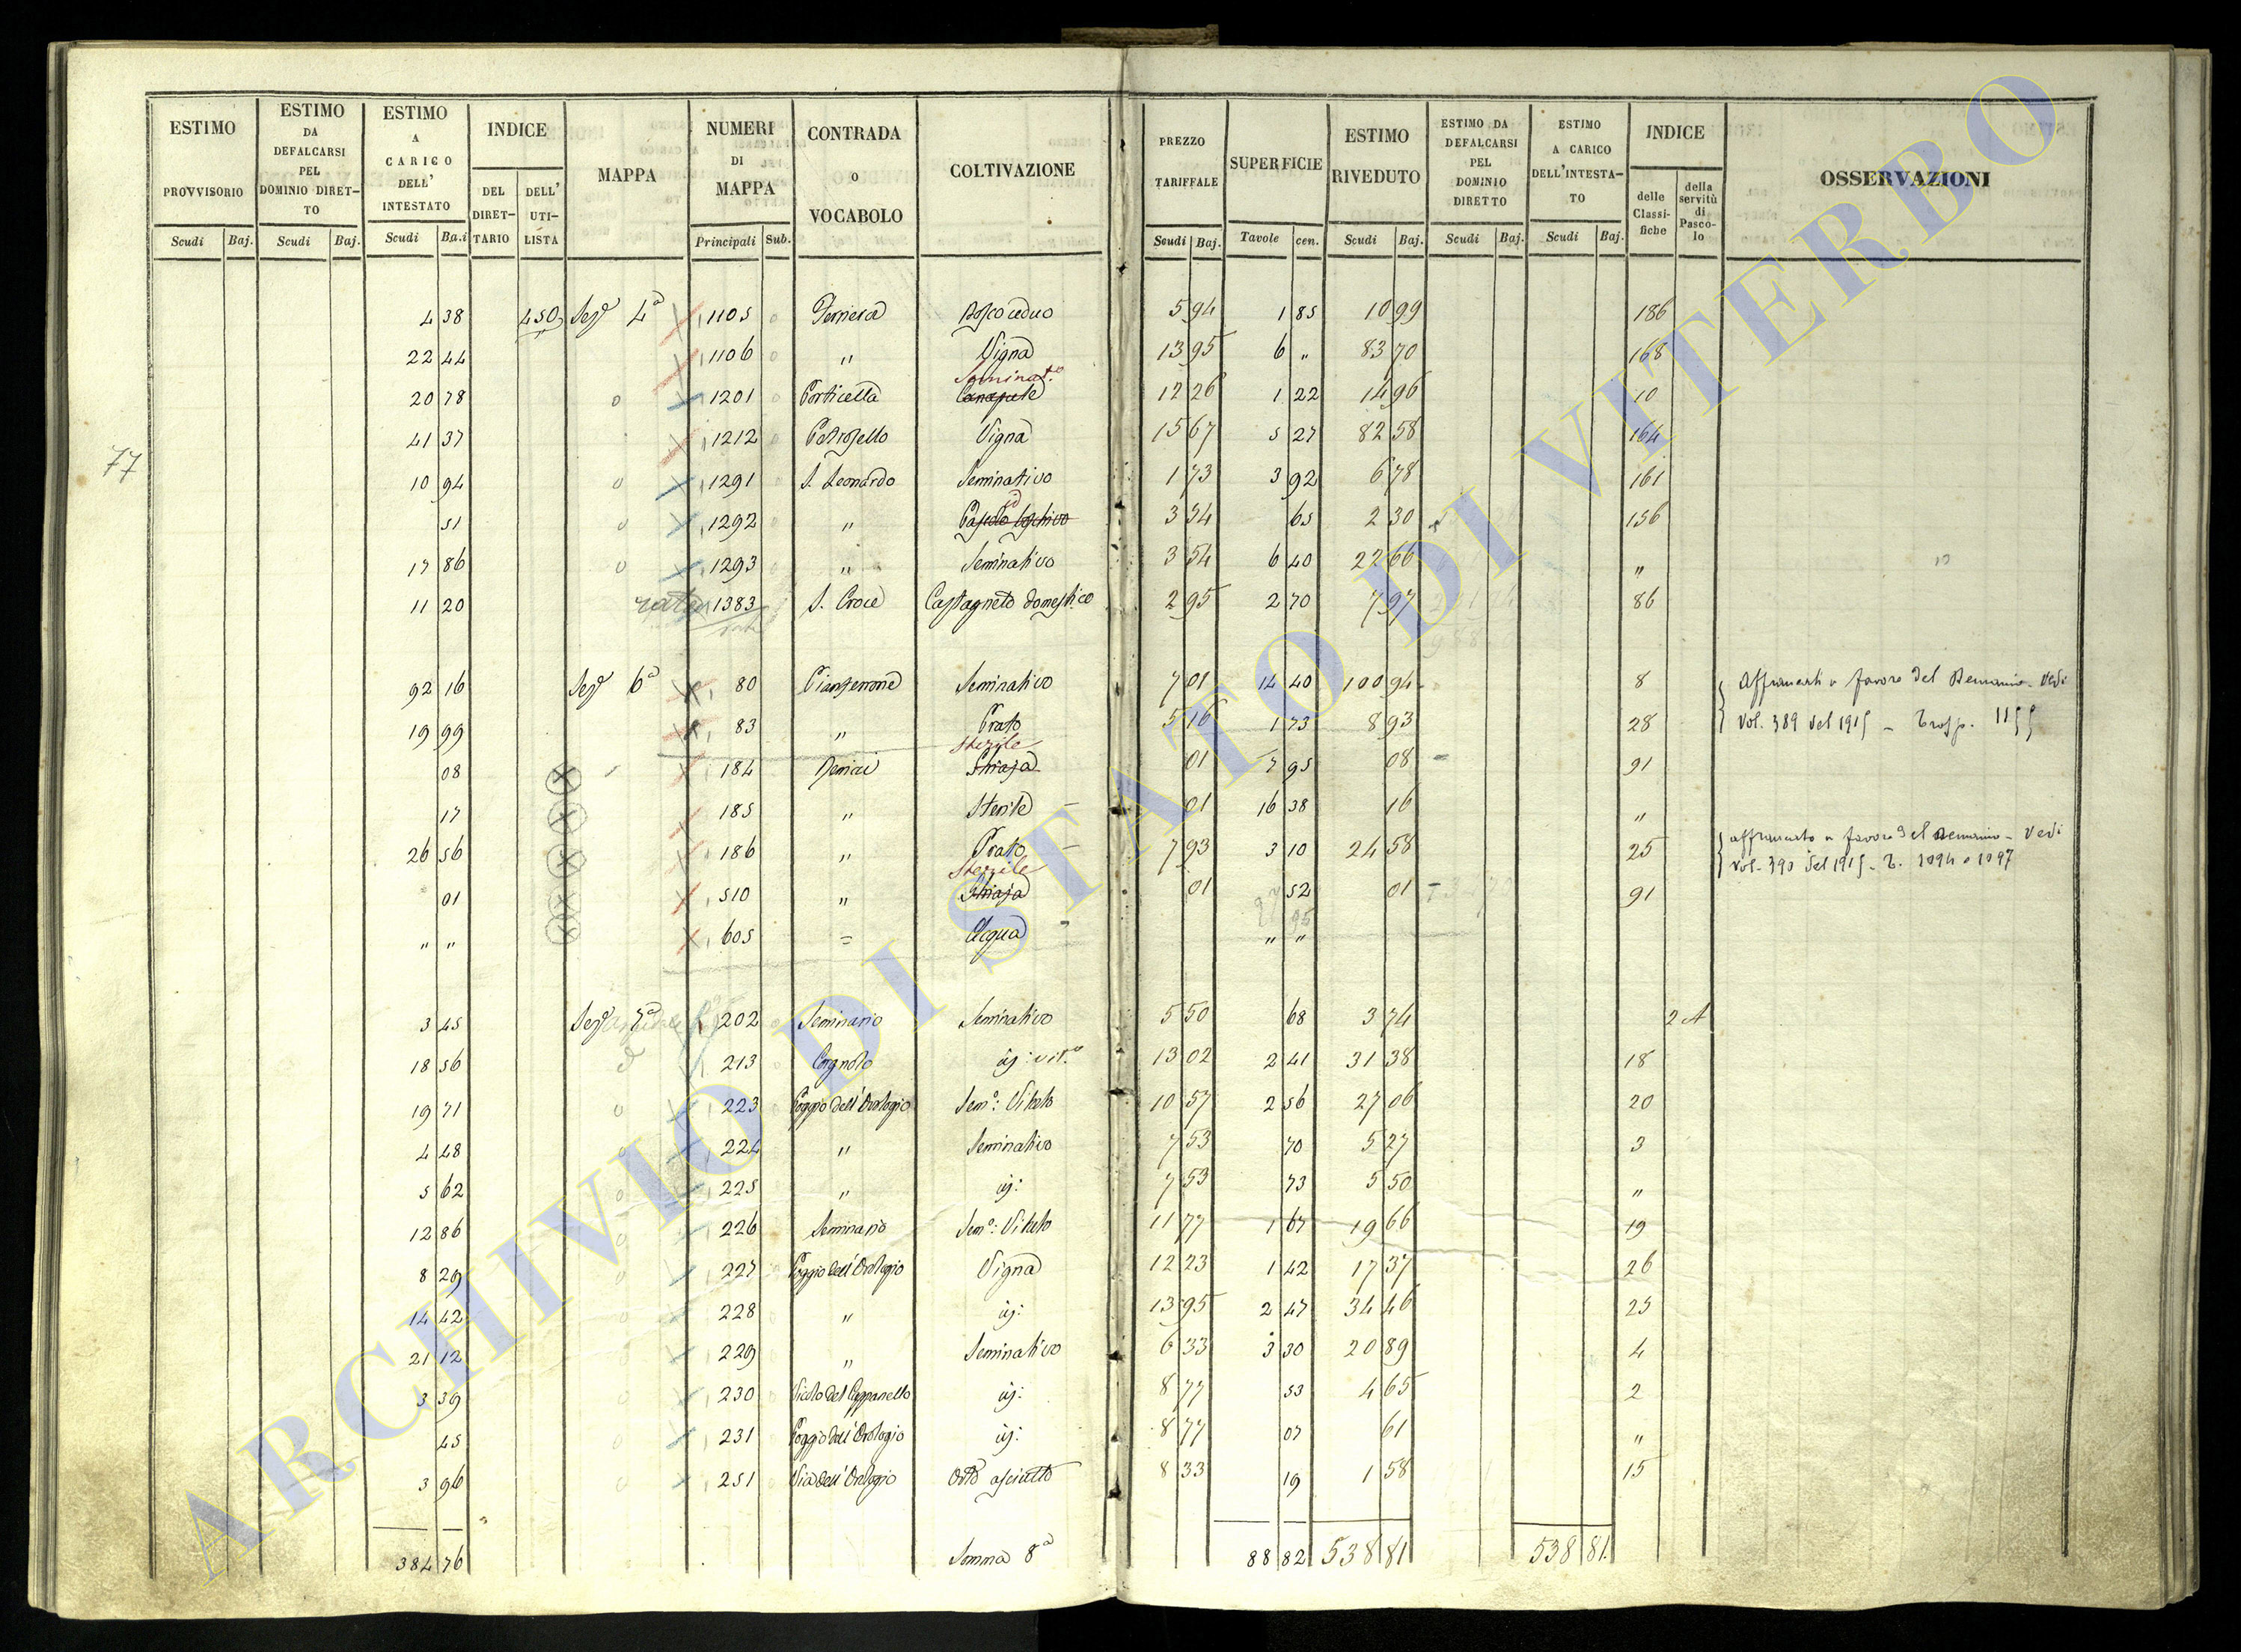 ESTIMO PROVVISORIO Scudi Baj.
ESTIMO DA DEFALCARSI PEL DOMINIO DIRET-TO Scudi Baj.
ESTIMO A CARICO DELL' INTESTATO Scudi Ba.i
INDICE DEL DIRET-TARIO DELL' UTI-LISTA
MAPPA
NUMERI DI MAPPA Principali Sub.
CONTRADA O VOCABOLO
COLTIVAZIONE
PREZZO TARIFFALE Scudi Baj.
SUPERFICIE Tavole cen.
ESTIMO RIVEDUTO Scudi Baj.
ESTIMO DA DEFALCARSI PEL DOMINIO DIRETTO Scudi Baj.
ESTIMO A CARICO DELL'INTESTA-TO Scudi Baj.
INDICE delle Classi-fiche della servitù di Pasco-lo
OSSERVAZIONI
4 38 450 Sez.e 4a 1105 Bosco ceduo 5 94 1 85 10 99 186
22 44 1106 " Vigna 13 95 6 " 83 70 168
Seminat.o
20 78 1201 Porticella Canapule 12 26 1 22 14 96 10
41 37 1212 Petrosello Vigna 15 67 5 27 82 58 164
77
10 94 1291 S. Leonardo Seminativo 1 73 3 92 6 78 161
id
51 1292 " Pascolo boschivo 3 54 65 2 30 156
17 86 1293 " Seminativo 3 54 6 40 22 66 "
11 20 1383 S. Croce Castagneto domestico 2 95 2 70 7 97 86
92 16 Sez.e 6a 80 Pianserrone Seminativo 7 01 14 40 100 94 8 Affrancati a favore del Demanio - Vedi
19 99 83 " Prato 5 16 1 73 8 93 28 Vol. 389 del 1915 - Trasp. 1155
sterile
08 184 Ghiaja 01 7 95 08 91
17 185 " Sterile 01 16 38 16 "
26 56 186 " Prato 7 93 3 10 24 58 25 affrancato a favore del Demanio - Vedi
vol. 390 del 1915 - T. 1094 e 1097
Sterile
01 510 " Ghiaja 01 52 01 91
" " 605 = Acqua " "
3 45 Sez.e 7a 202 Seminario Seminativo 5 50 68 3 74 2 A
18 56 213 Cognolo id: vit.o 13 02 2 41 31 38 18
19 71 223 Poggio dell'Orologio Sem.o: Vitato 10 57 2 56 27 06 20
4 48 224 " Seminativo 7 53 70 5 27 3
5 62 225 " id: 7 53 73 5 50 "
12 86 226 Seminario Sem.o: Vitato 11 77 1 67 19 66 19
8 29 227 Poggio dell'Orologio Vigna 12 23 1 42 17 37 26
14 42 228 " id: 13 95 2 47 34 46 25
21 12 229 " Seminativo 6 33 3 30 20 89 4
3 39 230 Vicolo del Cappanello id: 8 77 53 4 65 2
45 231 Poggio dell'Orologio id: 8 77 07 61 "
3 96 251 Via dell'Orologio Orto asciutto 8 33 19 1 58 15
384 76 Somma 8a 88 82 538 81 538 81
ARCHIVIO DI STATO DI VITERBO